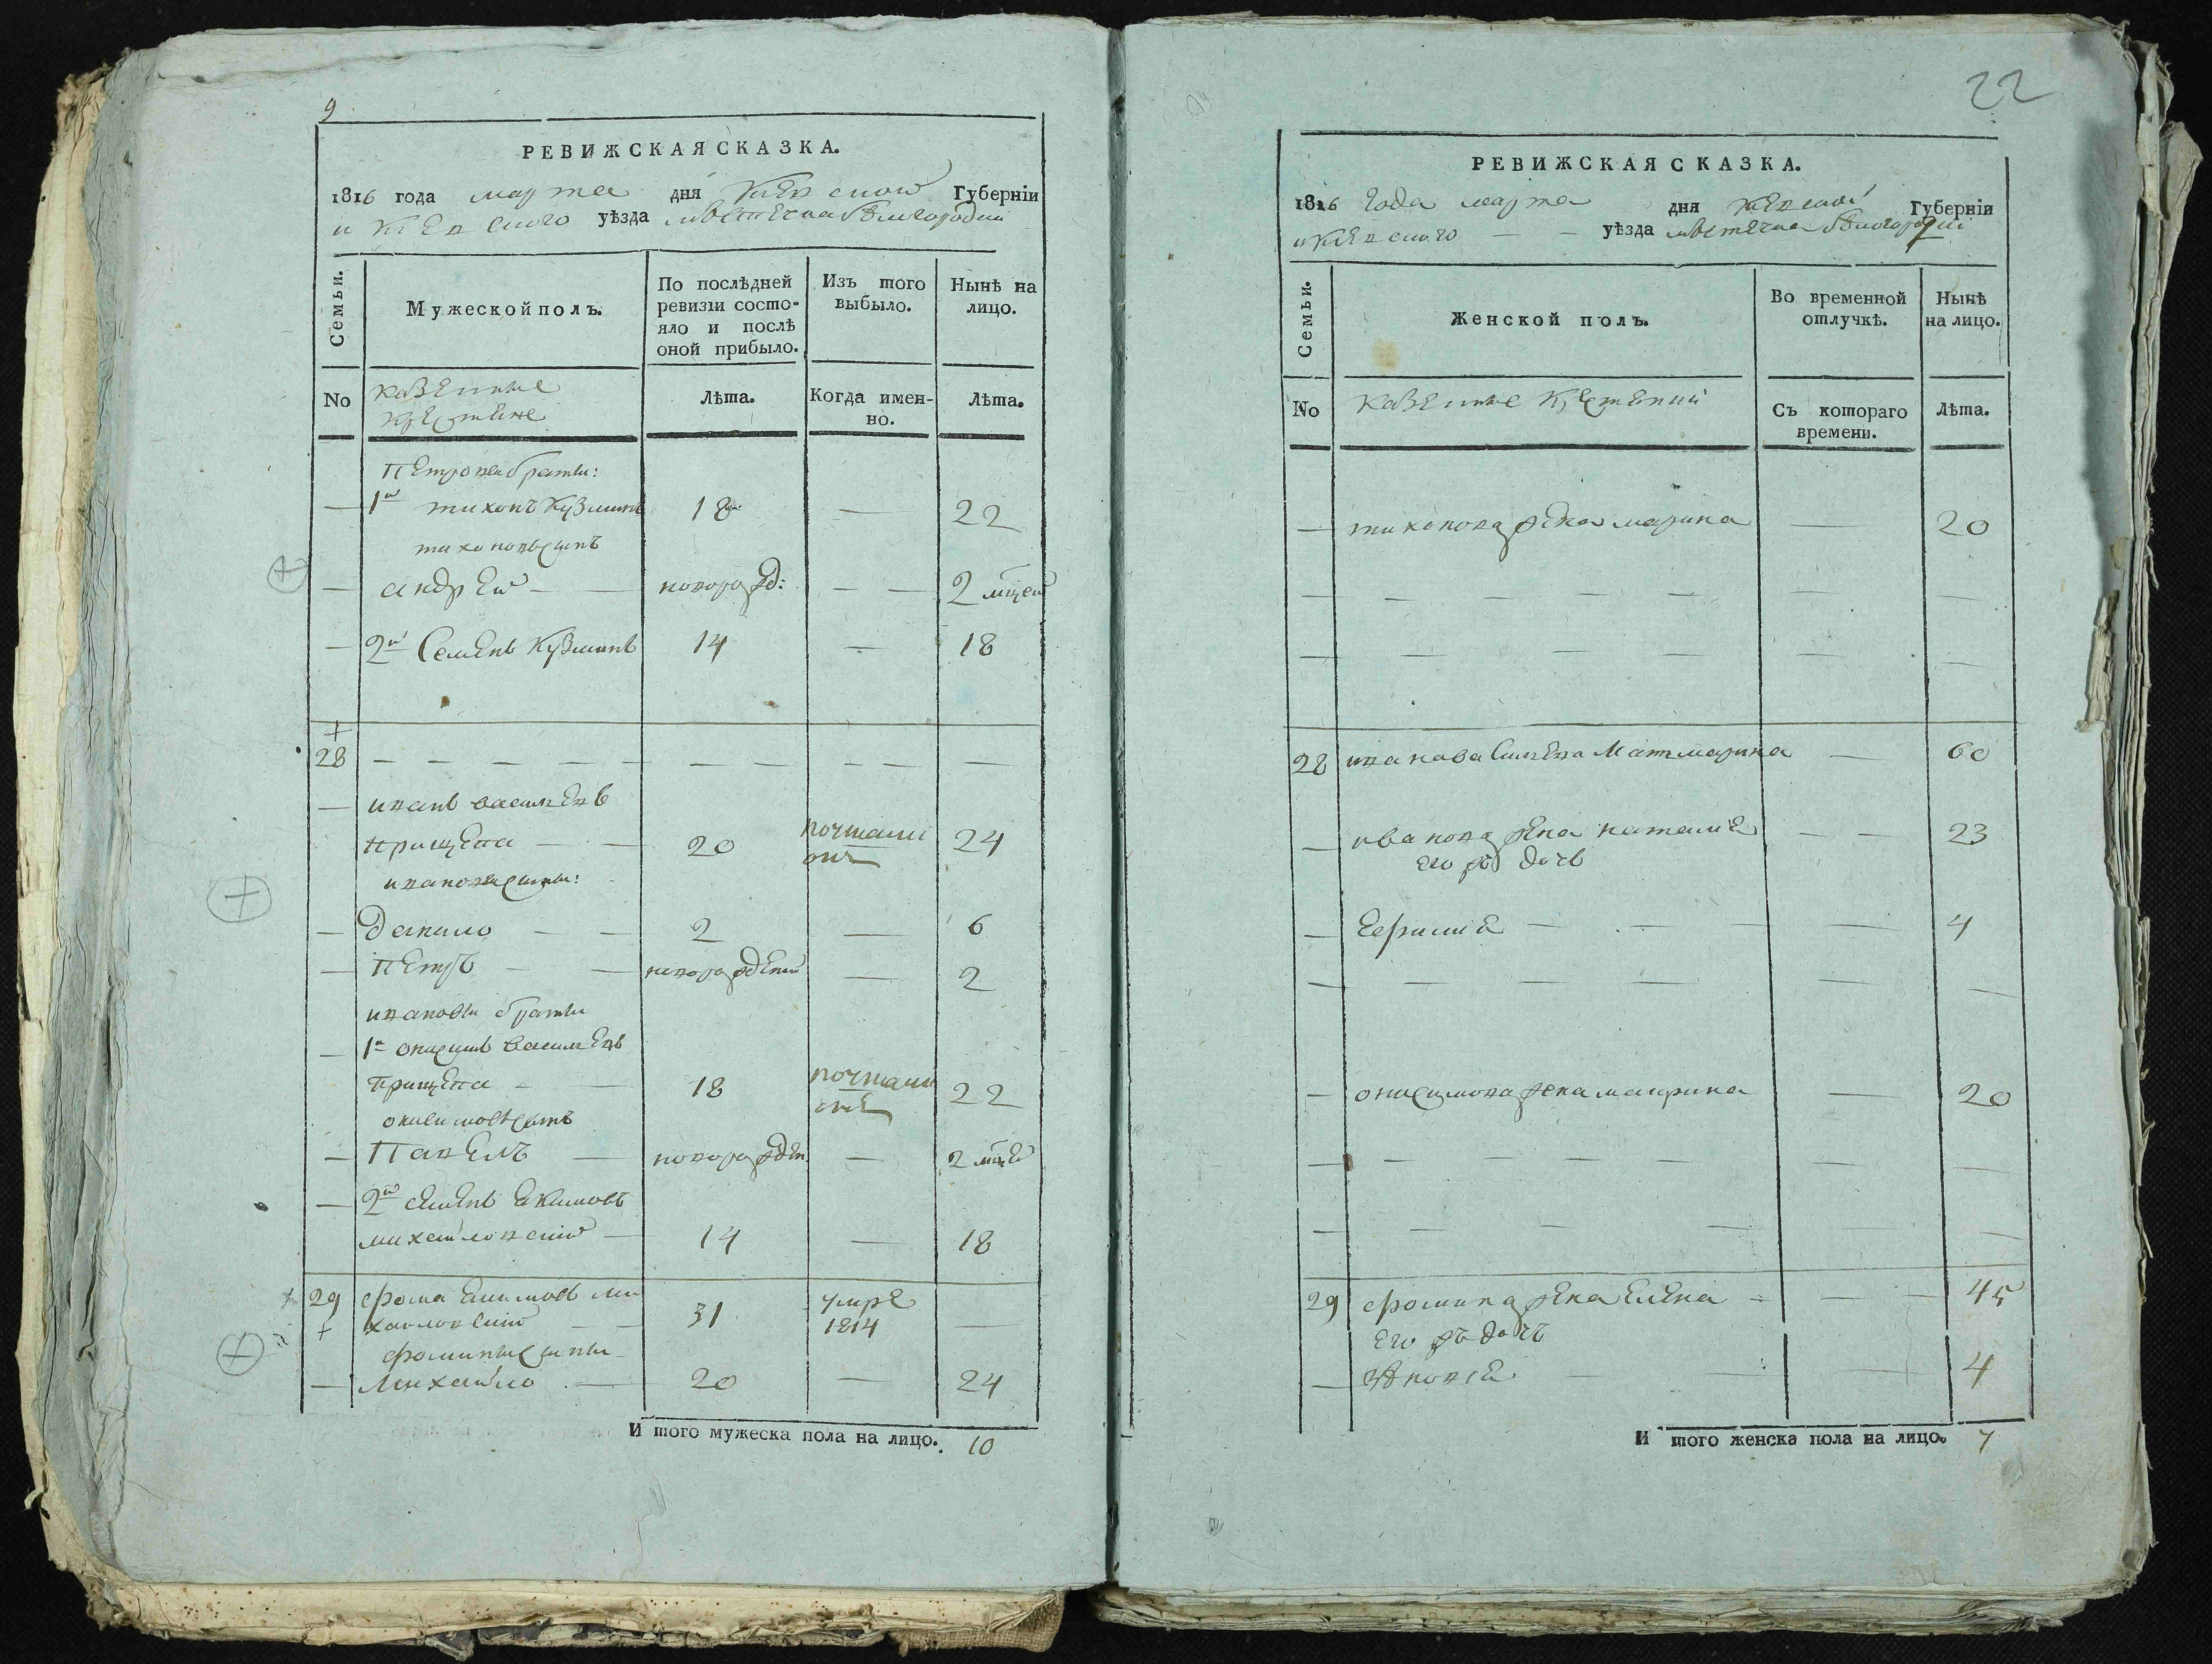 9
РЕВИЖСКАЯ СКАЗКА.
1816 года марта дня Киевской Губерніи
и Киевского уѣзда мѣстечка Бѣлогородки
Семьи.
Мужеской полъ.
По послѣдней ревизіи состо-
яло и послѣ
оной прибыло.
Изъ того
выбыло.
Нынѣ на
лицо.
No
казенные
крестяне
Лѣта.
Когда имен-
но.
Лѣта.
Петровы браты:
— 1й тихонъ Кузминъ 18 — 22
тихоновъ сынъ
— андрей — — новорожд: — — 2 мцей
— 2й Семенъ Кузминъ 14 — 18
+
28 — — — — — — — — — —
— иванъ василевъ
прищепа — — 20 почталионъ 24
ивановы сыны:
— данило — — 2 — 6
— Петръ — — новорожденой — 2
ивановы браты
— 1й онисимъ василевъ
прищепа — — 18 почталионъ 22
онисимовъ сынъ
— Павелъ — новорожден. — 2 мцей
— 2й семенъ екимовъ
михайловский — 14 — 18
29 фома екимовъ ми
+ хайловский — — 31 умре 1814 —
фомины сыны
— Михайло — 20 — 24
И того мужеска пола на лицо. 10
22
РЕВИЖСКАЯ СКАЗКА.
1816 года марта дня киевской Губерніи
и киевского — — уѣзда мѣстечка Бѣлогородки
Семьи.
Женской полъ.
Во временной
отлучкѣ.
Нынѣ
на лицо.
No
казенные крестянки
Съ котораго
времени.
Лѣта.
— тихонова жена марина — 20
— — — — — — —
— — — — — — —
28 иванова Мать марина — 60
— ивановa жена наталие — — 23
его ж дочь
— — — — 4
— — — — — —
— онисимова жена маврина — 20
— — — — — — —
— — — — —
29 фомина жена Елена — — — 45
его жъ дочь
— — — — 4
И того женска пола на лицо. 7